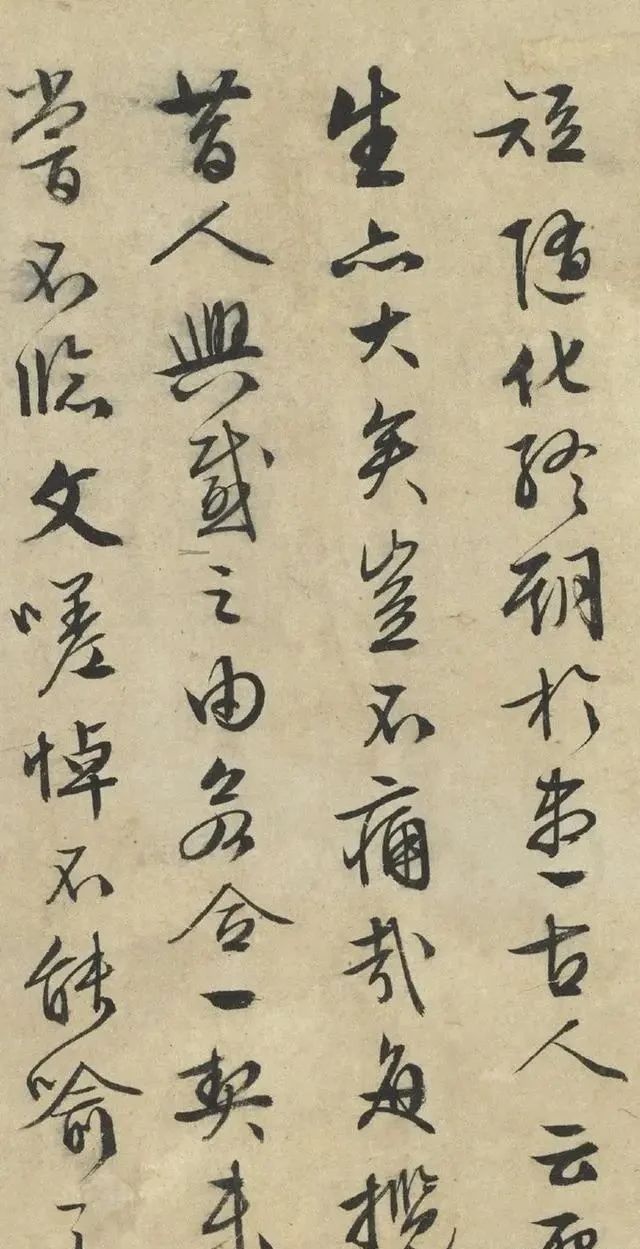 短隨化終期於盡古人云死
生亦大矣豈不痛哉每攬
昔人興感之由若合一契未
嘗不臨文嗟悼不能喻